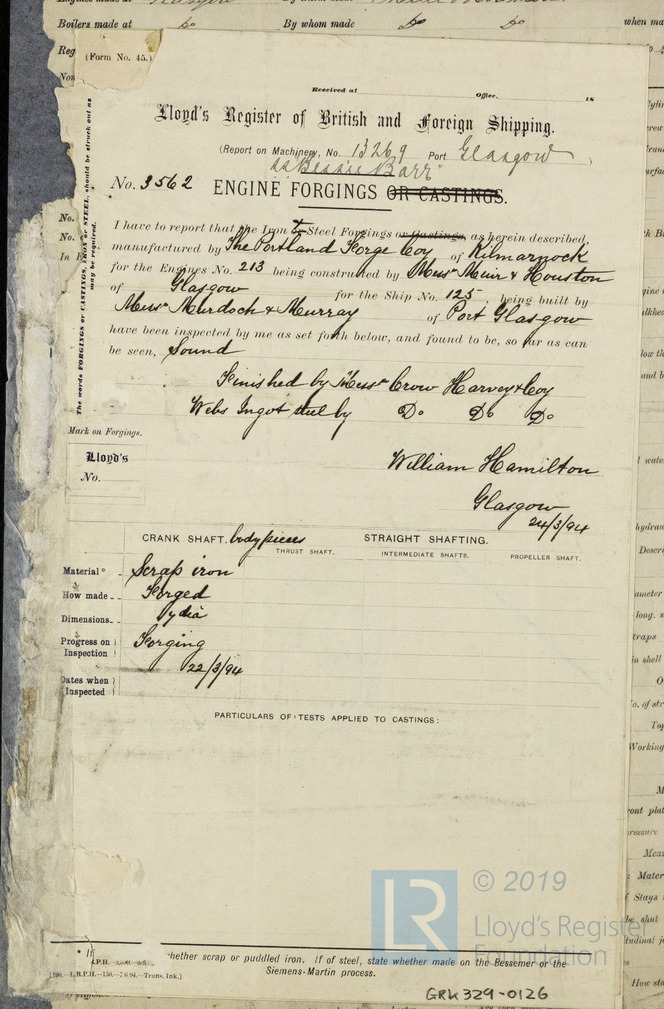 Boilers made at Do By whom made Do Do when ma
(Form No. 45.)
Received at Office, 18
Lloyd's Register of British and Foreign Shipping.
(Report on Machinery, No. 13269 Port Glasgow)
ss "Bessie Barr"
No. 3562 ENGINE FORGINGS OR CASTINGS.
The words FORGINGS or CASTINGS, IRON or STEEL, should be struck out as
may be required.
I have to report that the Iron & Steel Forgings or Castings, as herein described,
manufactured by The Portland Forge Coy of Kilmarnock
for the Engines No. 213 being constructed by Messrs Muir & Houston
of Glasgow for the Ship No. 125, being built by
Messrs Murdoch & Murray of Port Glasgow
have been inspected by me as set forth below, and found to be, so far as can
be seen, Sound
Finished by Messrs Crow Harvey & Coy
Webs Ingot steel by Do Do Do
Mark on Forgings.
Lloyd's
No.
William Hamilton
Glasgow
24/3/94
CRANK SHAFT. body pieces STRAIGHT SHAFTING.
THRUST SHAFT. INTERMEDIATE SHAFTS. PROPELLER SHAFT.
Material* Scrap iron
How made Forged
Dimensions dia
Progress on Inspection Forging
22/3/94
Dates when Inspected
PARTICULARS OF TESTS APPLIED TO CASTINGS:
© 2019
LR Lloyd's Register
Foundation
* If whether scrap or puddled iron. If of steel, state whether made on the Bessemer or the
Siemens-Martin process.
Trans. Ink.]
GRK329-0126